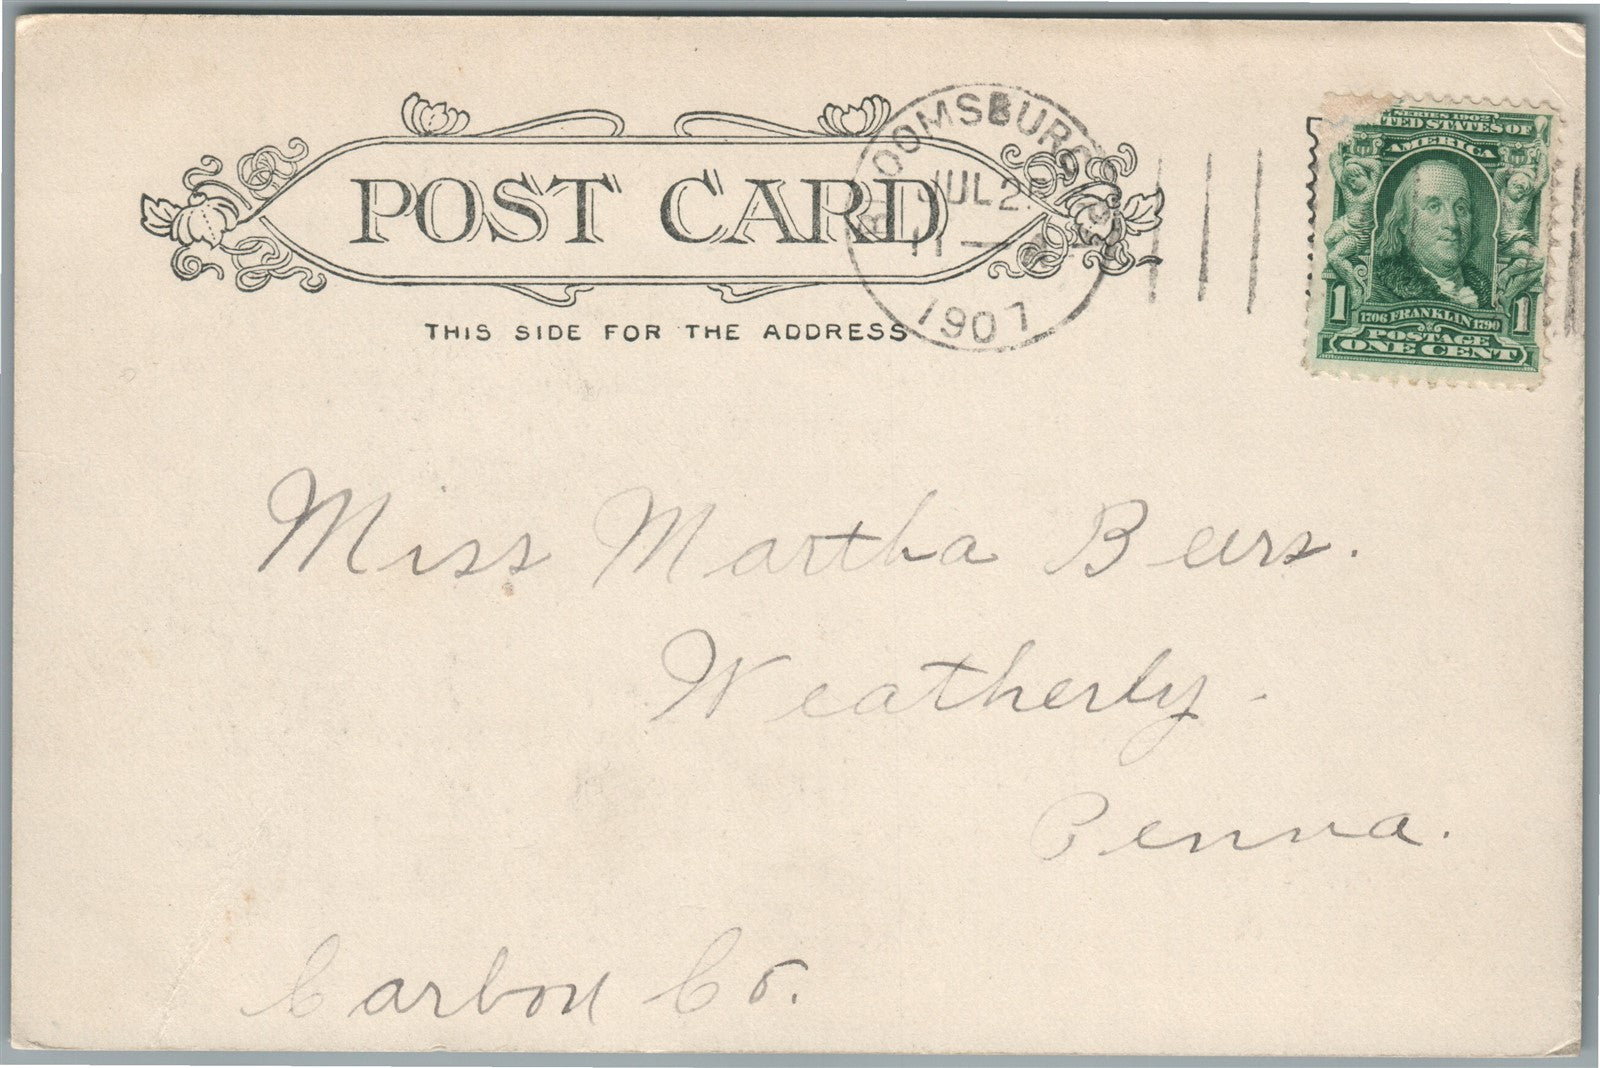 POST CARD
BLOOMSBURG
JUL 25
11 —
1907
SERIES 1902
UNITED STATES OF
AMERICA
1 1706 FRANKLIN 1790 1
POSTAGE
ONE CENT
THIS SIDE FOR THE ADDRESS
Miss Martha Beers.
Weatherly -
Penna.
Carbon Co.